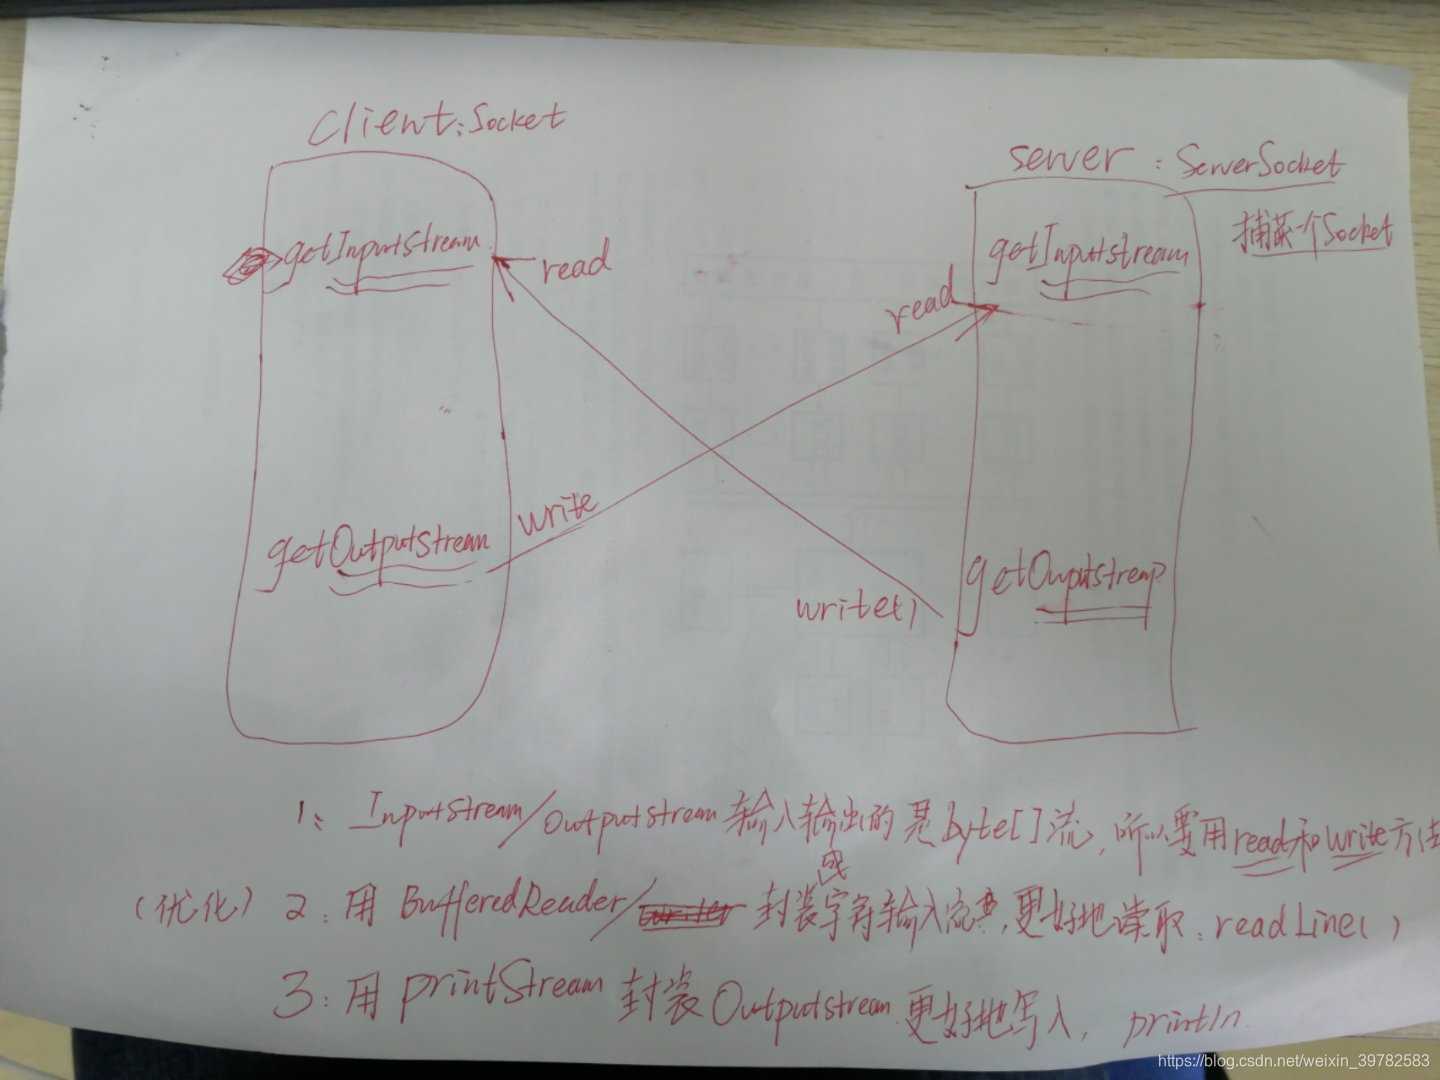 Client: Socket
server : ServerSocket
捕获一个Socket
getInputStream
read
getInputstream
read
getOutputStream
write
getOutputstream
write()
1: InputStream/Outputstream 输入输出的是byte[]流,所以要用read和write方法
(优化) 2: 用 BufferedReader/ 封装成字符输入流,更好地读取: readLine()
3: 用 printStream 封装Outputstream 更好地写入, println
https://blog.csdn.net/weixin_39782583